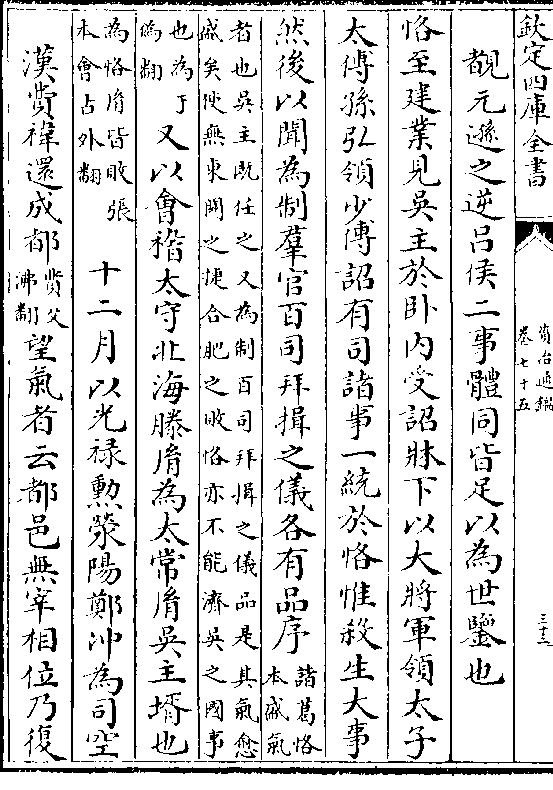 欽定四庫全書
資治通鑑
卷七十五
三十三
覩元遜之逆呂侯二事體同皆足以為世鑒也
恪至建業見吳主於卧内受詔牀下以大將軍領太子
太傅孫弘領少傅詔有司諸事一統於恪惟殺生大事
然後以聞為制羣官百司拜揖之儀各有品序諸葛恪本盛氣
者也吳主既任之又為制百司拜揖之儀品是其氣愈
盛矣使無東關之捷合肥之敗恪亦不能濟吳之國事
也為于偽翻又以會稽太守北海滕𦙍為太常𦙍吳主壻也
為恪𦙍皆敗張本會古外翻十二月以光禄勲滎陽鄭沖為司空
漢費禕還成都費父沸翻望氣者云都邑無宰相位乃復